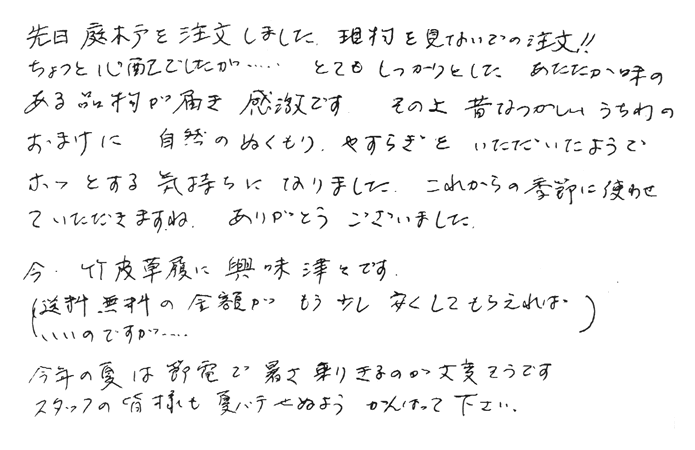 先日 庭木戸を注文しました. 現物を見ないでの注文!!
ちょっと心配でしたが‥‥‥ とてもしっかりとした あたたか味の
ある品物が届き 感激です. その上 昔なつかしいうちわの
おまけに 自然のぬくもり、やすらぎを いただいたようで
ホッとする気持ちになりました. これからの季節に使わせ
ていただきますね. ありがとうございました.
今. 竹皮草履に興味津々です.
(送料無料の金額が もう少し安くしてもらえれば
いいのですが‥‥‥)
今年の夏は節電で暑さ乗りきるのが大変そうです
スタッフの皆様も夏バテせぬよう がんばって下さい.